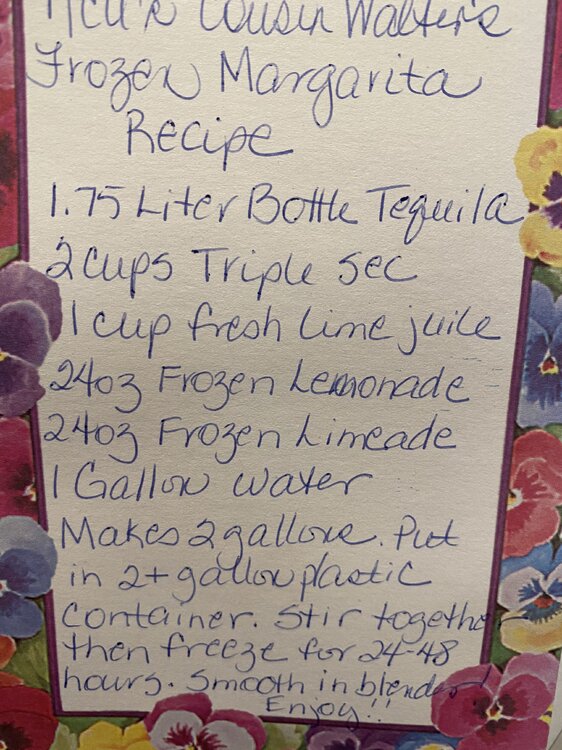 Cousin Walter's
Frozen Margarita
Recipe
1.75 Liter Bottle Tequila
2 cups Triple Sec
1 cup fresh lime juice
24oz Frozen Lemonade
24oz Frozen Limeade
1 Gallon water
Makes 2 gallons. Put
in 2+ gallon plastic
container. Stir together
then freeze for 24-48
hours. Smooth in blender!
Enjoy!!